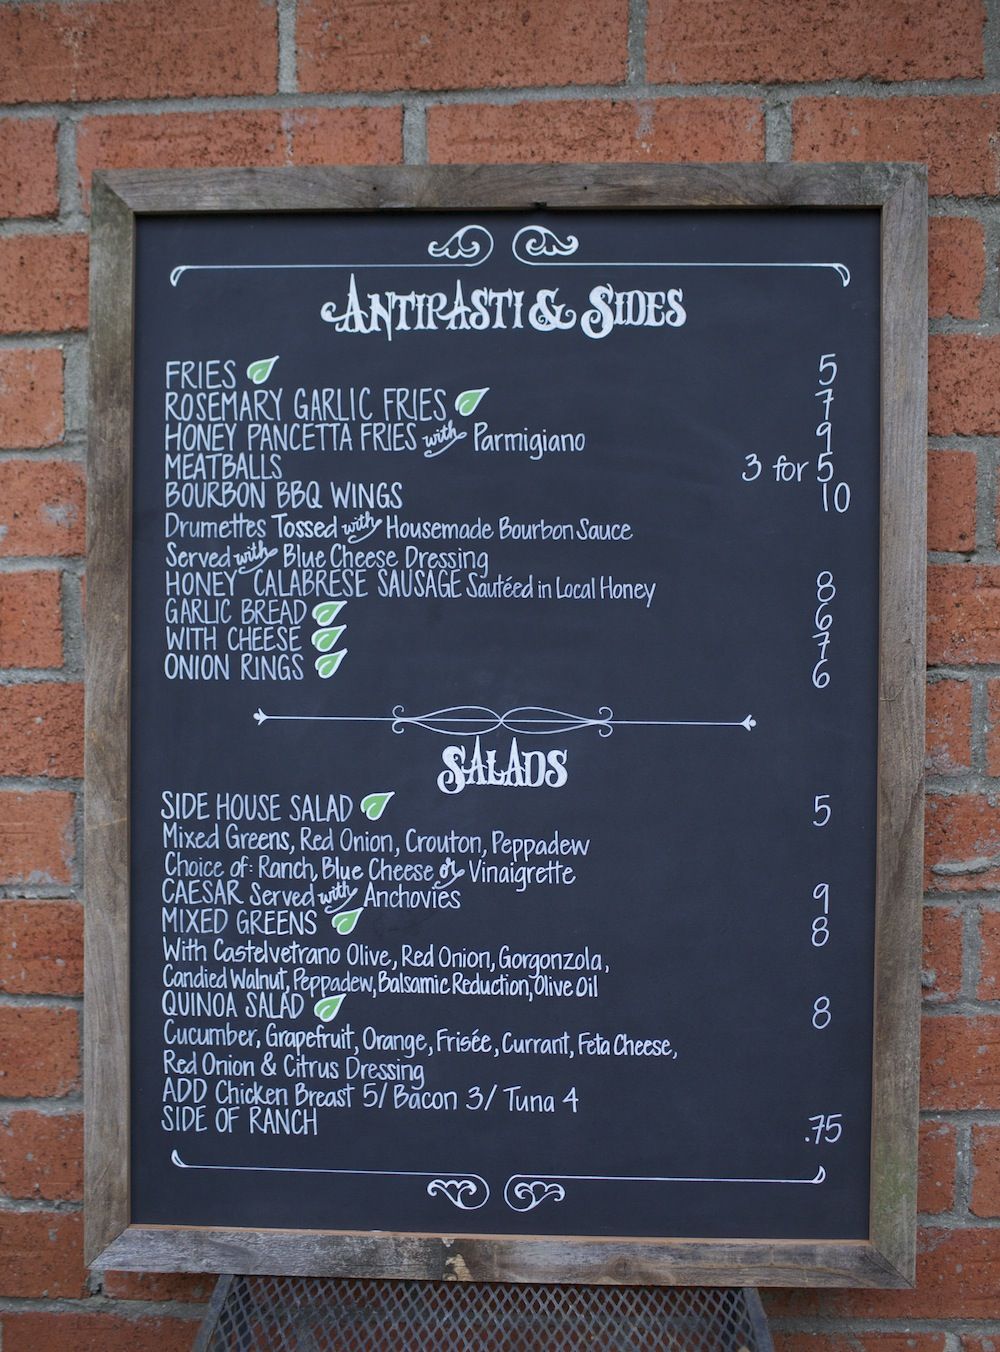 ANTIPASTI & SIDES
FRIES 5
ROSEMARY GARLIC FRIES 7
HONEY PANCETTA FRIES with Parmigiano 9
MEATBALLS 3 for 5
BOURBON BBQ WINGS 10
Drumettes Tossed with Housemade Bourbon Sauce
Served with Blue Cheese Dressing
HONEY CALABRESE SAUSAGE Sautéed in Local Honey 8
GARLIC BREAD 6
WITH CHEESE 7
ONION RINGS 6
SALADS
SIDE HOUSE SALAD 5
Mixed Greens, Red Onion, Crouton, Peppadew
Choice of: Ranch, Blue Cheese or Vinaigrette
CAESAR Served with Anchovies 9
MIXED GREENS 8
With Castelvetrano Olive, Red Onion, Gorgonzola,
Candied Walnut, Peppadew, Balsamic Reduction, Olive Oil
QUINOA SALAD 8
Cucumber, Grapefruit, Orange, Frisée, Currant, Feta Cheese,
Red Onion & Citrus Dressing
ADD Chicken Breast 5/ Bacon 3/ Tuna 4
SIDE OF RANCH .75